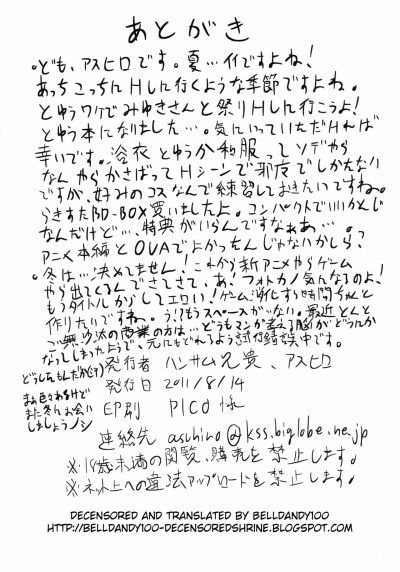 あとがき
。ども、アスヒロです。夏…イイですよね!
あっちこっちにHしに行くような季節ですよね。
とゆうワケでみゆきさんと祭りHしに行こうよ!
とゆう本になりました…。気にいっていただければ
幸いです。浴衣とゆうか和服ってソデやら
なんやらかさばってHシーンで邪魔でしかたない
ですが、好みのコスなんで練習しておきたいですね。
らきすたBD-BOX買いましたよ。コンパクトでいいかんじ
なんだけど…、特典がいらんですなぁあ…。
アニメ本編とOVAでよかったんじゃないかしら?
。冬は…決めてません!これから新アニメやらゲーム
やら出てくるんでさてさて。あ!フォトカノ気んなるのよ!
もうタイトルからしてエロい!ゲーム
作りたいですね。う!?もうスペースがない。最近とんと
ご無沙汰の商業の方は…どうもマンガ考える脳がどうにか
なってしまったようで、元にもどれるよう試行錯誤中です。
どうしたもんだか(?)
まぁ色々あるけど
また冬にお会い
しましょうノシ
発行者 ハンサム兄貴、アスヒロ
発行日 2011/8/14
印刷 PICO様
連絡先 asuhiro@kss.biglobe.ne.jp
※18歳未満の閲覧、購売を禁止します。
※ネット上への違法アップロードを禁止します。
DECENSORED AND TRANSLATED BY BELLDANDY100
HTTP://BELLDANDY100-DECENSOREDSHRINE.BLOGSPOT.COM